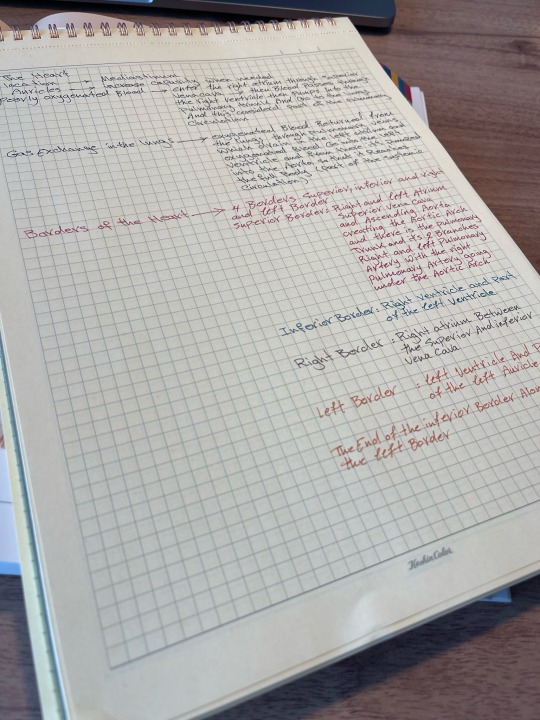 The Heart
location → Mediastinum
Auricles → increase capacity when needed
Poorly oxygenated Blood → enter the right atrium through Superior
vena cava, then Blood Passes through
the right ventricle then Pumps into the
Pulmonary trunk And Go to the lungs
And this considered part of the pulmonary
Circulation
Gas Exchange in the lungs → oxygenated Blood Returned from
the lungs through pulmonary veins
which drain in the left atrium and
oxygenated Blood Go into the left
ventricle and from there it's pumped
into the Aorta so that it Reaches
the full Body (part of the systemic
Circulation)
Borders of the Heart → 4 Borders Superior, inferior and right
and left Border
Superior Border: Right and left Atrium
Superior Vena Cava
and Ascending Aorta
creating the Aortic Arch
and there is the Pulmonary
Trunk and its 2 Branches
Right and left Pulmonary
Artery With the right
Pulmonary Artery going
under the Aortic Arch
Inferior Border: Right Ventricle and Part
of the left Ventricle
Right Border: Right atrium Between
the Superior And inferior
Vena Cava
Left Border: left Ventricle And
of the left Auricle
The End of the inferior Border
the left Border
KeshinColor